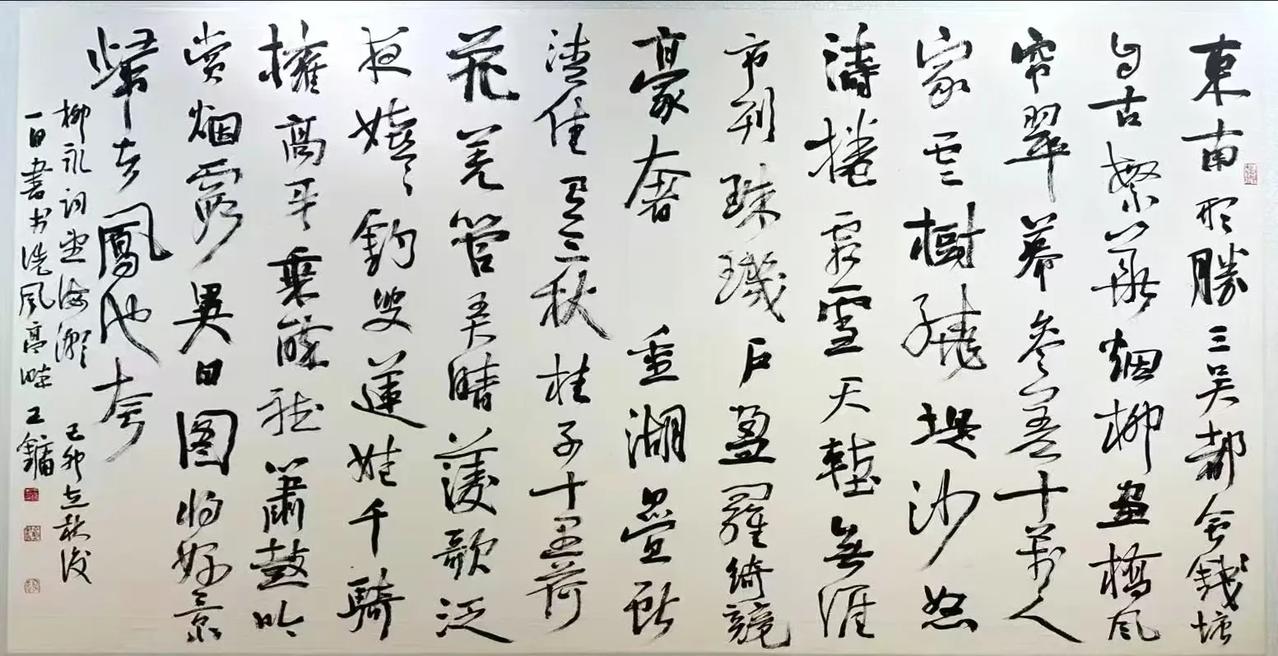 東南形勝三吴都会錢塘
自古繁華烟柳畫橋風
帘翠幕参差十萬人
家雲樹繞堤沙怒
濤捲霜雪天塹無涯
市列珠璣户盈羅綺競
豪奢 重湖疊巘
清佳有三秋桂子十里荷
花羌管弄晴菱歌泛
夜嬉嬉釣叟蓮娃千騎
擁高牙乘醉聽簫鼓吟
赏烟霞異日图将好景
歸去鳳池夸
柳永词望海潮 己卯立秋後
一日書 風亭 王鏞